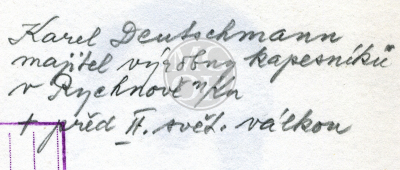 Karel Deutschmann
majitel výrobny kapesníků
v Rychnově n/Kn
+ před II. svět. válkou